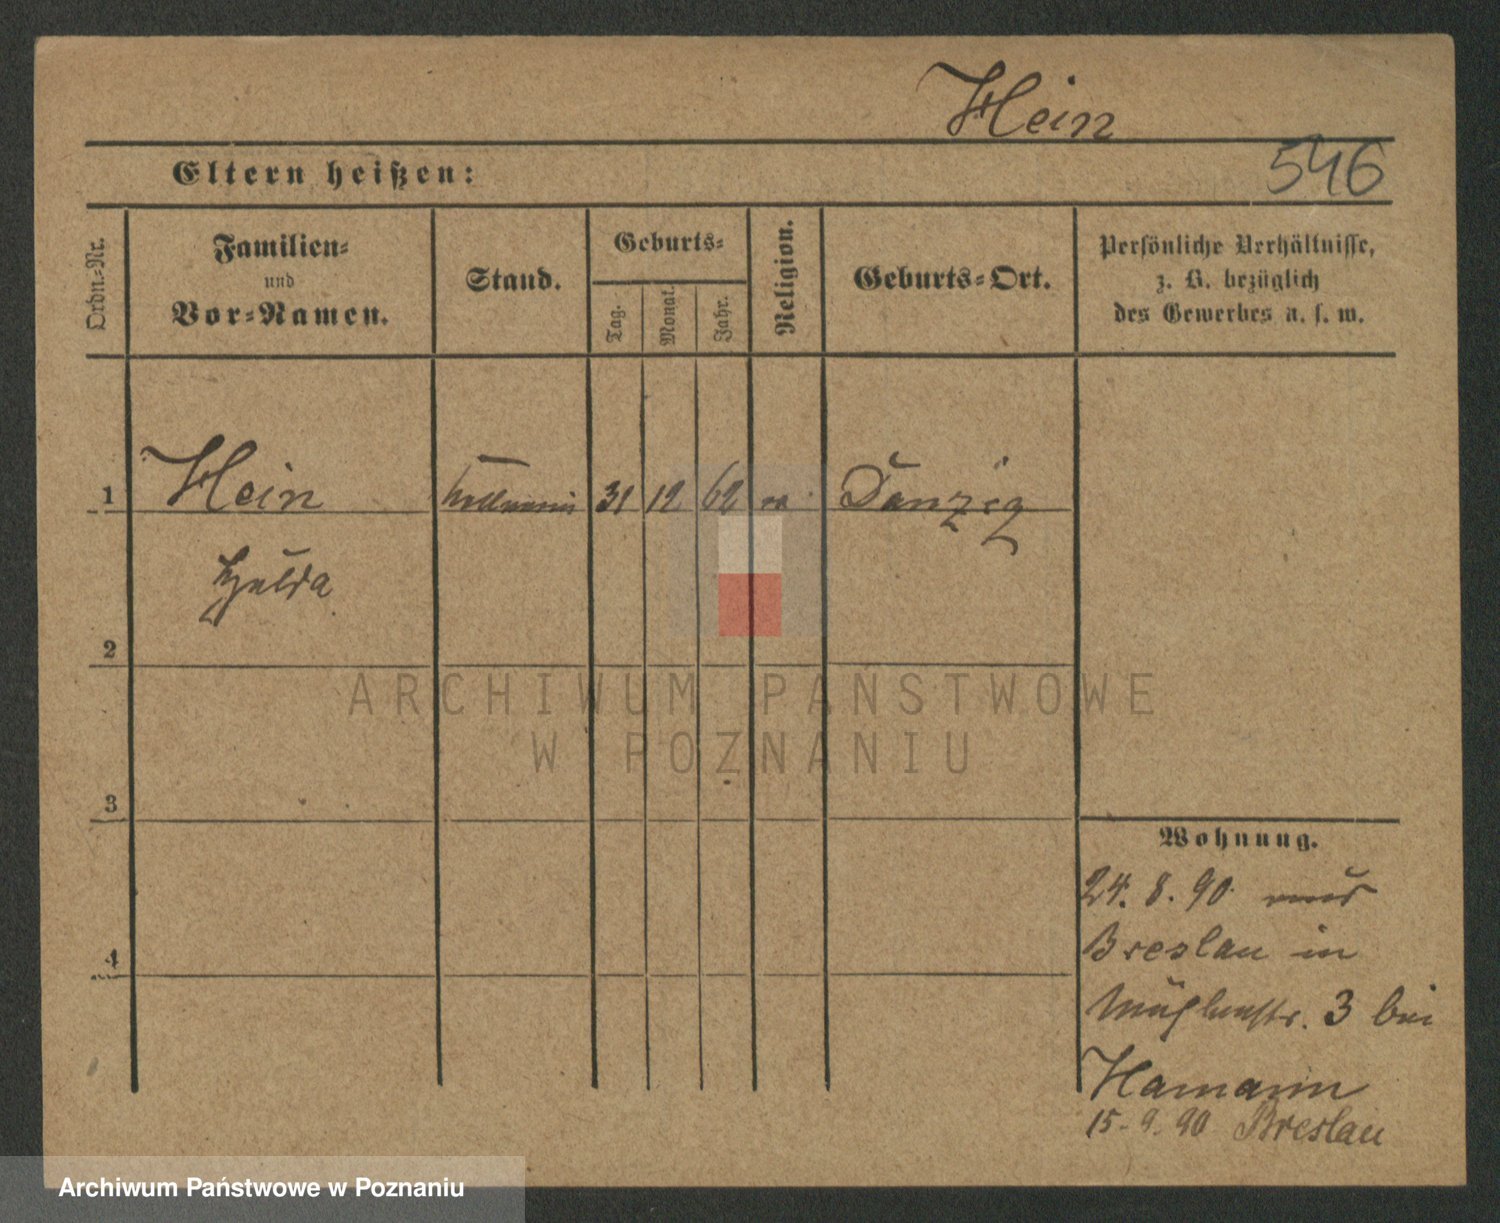 Hein
546
Eltern heißen:
Ordn.-Nr.
Familien-
und
Vor-Namen.
Stand.
Geburts-
Tag.
Monat.
Jahr.
Religion.
Geburts-Ort.
Persönliche Verhältnisse,
z. B. bezüglich
des Gewerbes u. s. w.
1 Hein 31 12 62 Danzig
Hulda
2
3
4
Wohnung.
24. 8. 90 aus
Breslau in
Mühlenstr. 3 bei
Hamann
15. 9. 90 Breslau
ARCHIWUM PAŃSTWOWE
W POZNANIU
Archiwum Państwowe w Poznaniu